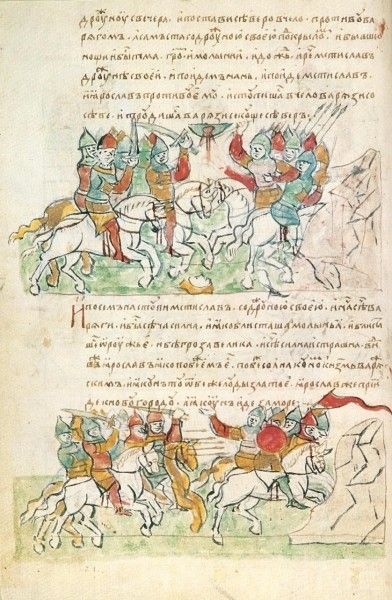 дроуноу свечера, ипостависѣверовчело, противова
рягом, асамъстасдроуноюсвоеюпокрыло, ибывшю
нощи быстьтма. гро, имолыниꙗ, идожь, иречемстиславъ
дроунѣ своеи, ипоидемъ нань, ипоиде мстиславъ.
иꙗрославъ противоуемоу, исътоупиша вчело варꙗзи со
сѣве, итроудиша варꙗзи секоще сѣверъ.
Ипосемъ настоупи мстиславъ, содроноюсвоею, иначасѣчи ва
рꙗги, ибы сѣча силна, ико блисташа молыньꙗ, иблиста
шеѿ роужье, ибѣ гроза велика, исѣчасилна истрашна, ви
вже ꙗрославъ ꙗкопобѣжаемъе. побѣже соꙗкоуномъ кнземъ варꙗ
скимъ, иꙗкоунъ тоу ѿбеже лоуды златое. ꙗрославъже при
де кновоугородоу, а ꙗкоунъ иде заморе.